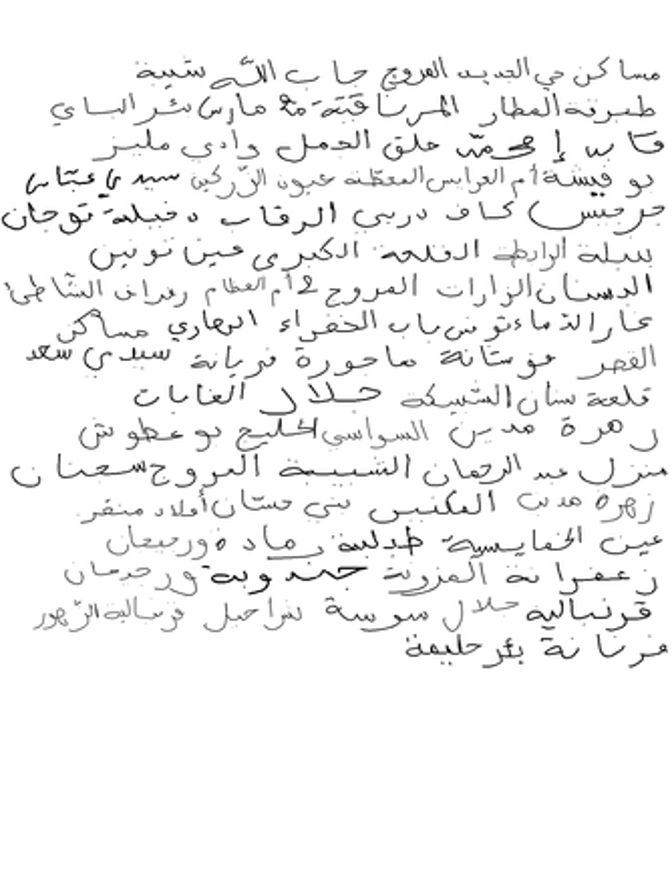 مساكن حي الجديد المروج جاب الله شيبة
طبرقة المطار المرناقية 20 مارس بئر الباي
قابس إمحمد حلق الجمل وادي مليز
بو فيشة أم العرايس المعظنة عيون الزركين سيدي عياش
جرجيس كاف دربي الرقاب دخيلة توجان
سيلة الرابطة القلعة الكبرى عين تونين
البستان الزارات المروج 2 أم العظام رفراف الشاطئ
عار الذماء تونس باب الخضراء البهاري مساكن
القصر فوسانة ماجورة فريانة سيدي سعد
قلعة سنان الشبيكة جلال الغابات
زهرة مدين السواسي الخليج بو عطوش
منزل عبد الرحمان الشبيبة المروج سجنان
زهرة مدين المكنين بني حسان أولاد منصر
عين الخمايسية طبلبة رمادة ورجيعان
زعفرانة المزونة جندوبة ورجدمان
قرنبالية جلال سوسة شراحيل قرنبالية الزهور
فرنانة بئر حليمة